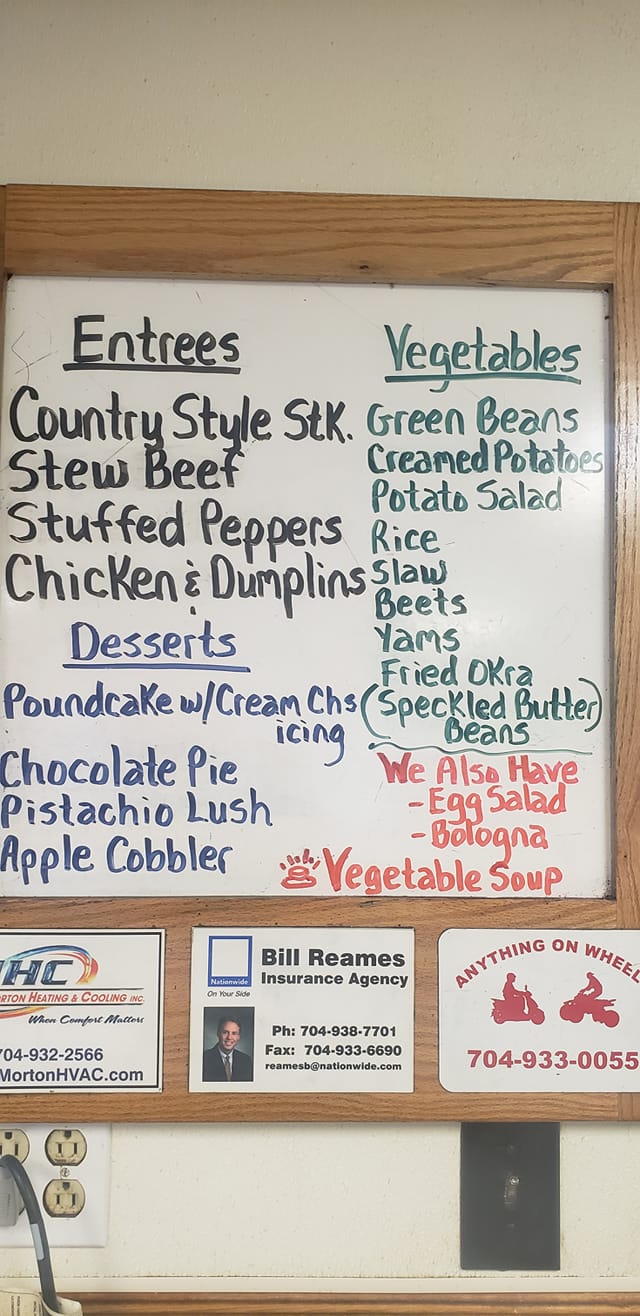 Entrees
Country Style Stk.
Stew Beef
Stuffed Peppers
Chicken & Dumplins
Desserts
Poundcake w/Cream Chs
icing
Chocolate Pie
Pistachio Lush
Apple Cobbler
Vegetables
Green Beans
Creamed Potatoes
Potato Salad
Rice
Slaw
Beets
Yams
Fried Okra
(Speckled Butter)
Beans
We Also Have
- Egg Salad
- Bologna
Vegetable Soup
HC
RTON HEATING & COOLING INC.
When Comfort Matters
704-932-2566
MortonHVAC.com
Nationwide
On Your Side
Bill Reames
Insurance Agency
Ph: 704-938-7701
Fax: 704-933-6690
reamesb@nationwide.com
ANYTHING ON WHEEL
704-933-0055